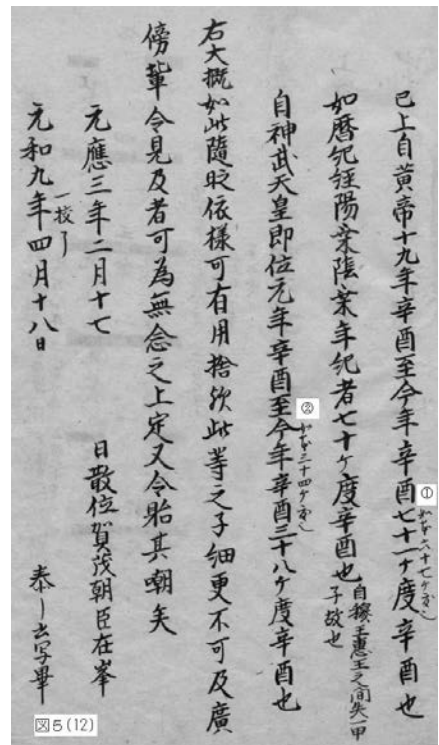 已上自黄帝十九年辛酉至今年辛酉七十一ケ度辛酉也
①
如暦紀経陽老陰老年紀者七十ケ度辛酉也
自赧王恵王之間失一甲
子故也
自神武天皇即位元年辛酉至今年辛酉三十八ケ度辛酉也
②
右大概如此随時依様可有用捨欤此等之子細更不可及廣
傍輩令見及者可為無念之上定又令貽其嘲矣
元應三年二月十七
日散位賀茂朝臣在峯
一校了
元和九年四月十八日
泰
写畢
図5(12)